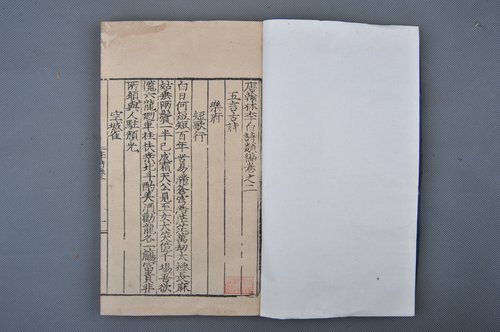 唐翰林李白詩類編卷之二
五言古詩
樂府
短歌行
白日何短短百年苦易滿蒼穹浩茫茫萬劫太極長麻
姑垂兩鬢一半已成霜天公見玉女大笑億千場吾欲
攬六龍廻車挂扶桑北斗酌美酒勸龍各一觴富貴非
所願與人駐顏光
空城雀